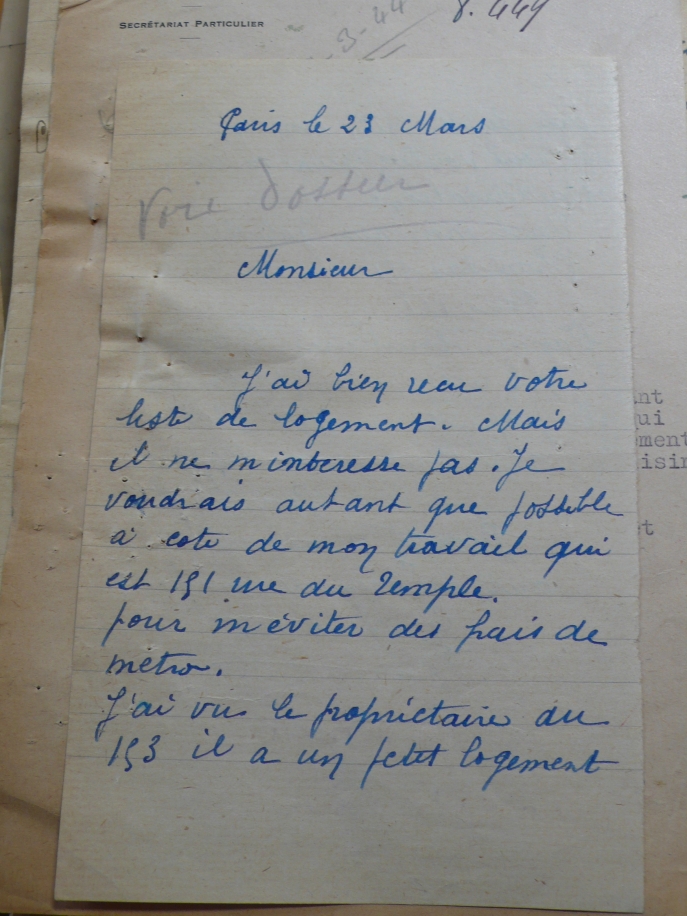 SECRÉTARIAT PARTICULIER
3-44
8.449
Paris le 23 Mars
Voir Dossier
Monsieur
J'ai bien recu votre
liste de logement. Mais
il ne m'interesse pas. Je
voudrais autant que possible
a cote de mon travail qui
est 191 rue du Temple.
pour m'éviter des frais de
metro.
J'ai vus le propriétaire du
193 il a un petit logement
nt
ui
ment
isin
t